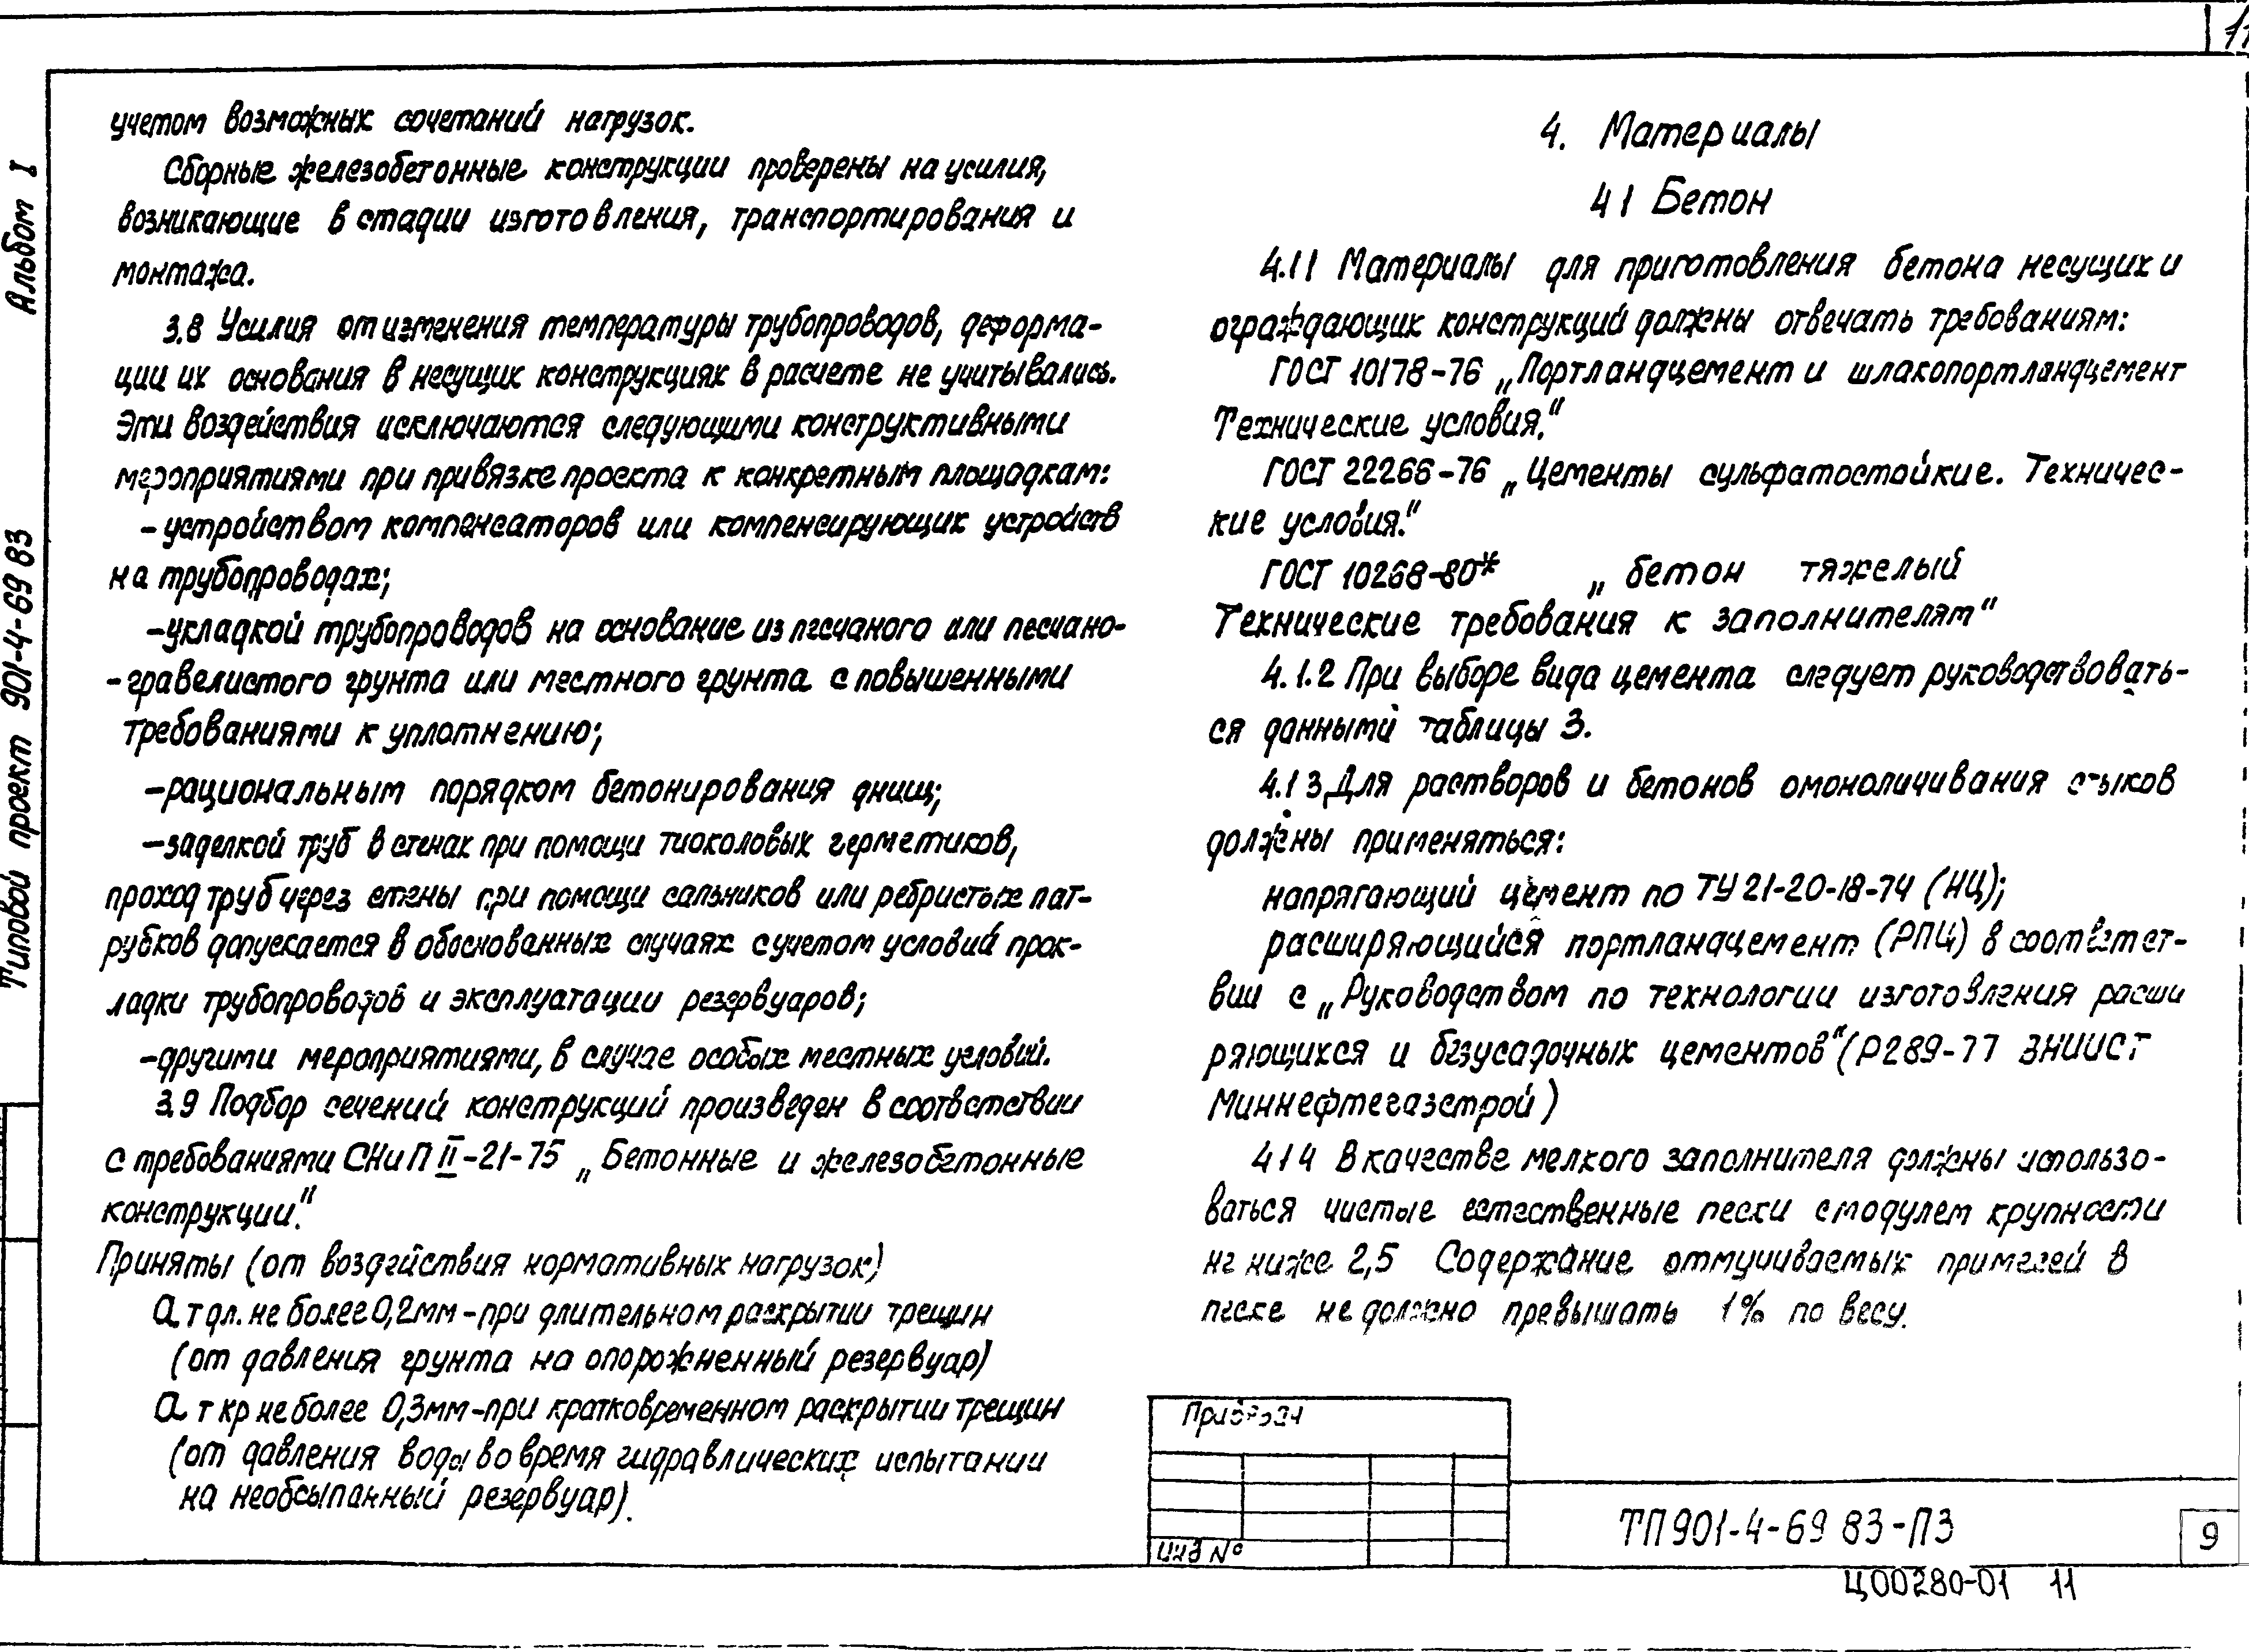 учетом возможных сочетаний нагрузок.
Сборные железобетонные конструкции проверены на усилия,
возникающие в стадии изготовления, транспортирования и
монтажа.
3.8 Усилия от изменения температуры трубопроводов, деформа-
ции их основания в несущих конструкциях в расчете не учитывались.
Эти воздействия исключаются следующими конструктивными
мероприятиями при привязке проекта к конкретным площадкам:
-устройством компенсаторов или компенсирующих устройств
на трубопроводах;
-укладкой трубопроводов на основание из песчаного или песчано-
-гравелистого грунта или местного грунта с повышенными
требованиями к уплотнению;
-рациональным порядком бетонирования днищ;
-заделкой труб в стенах при помощи тиоколовых герметиков,
проход труб через стены при помощи сальников или ребристых пат-
рубков допускается в обоснованных случаях с учетом условий прок-
ладки трубопроводов и эксплуатации резервуаров;
-другими мероприятиями, в случае особых местных условий.
3.9 Подбор сечений конструкций произведен в соответствии
с требованиями СНиП II-21-75 „Бетонные и железобетонные
конструкции."
Приняты (от воздействия нормативных нагрузок)
а т дл. не более 0,2мм-при длительном раскрытии трещин
(от давления грунта на опорожненный резервуар)
а т кр не более 0,3мм-при кратковременном раскрытии трещин
(от давления воды во время гидравлических испытании
на необсыпанный резервуар).
4. Материалы
4 1 Бетон
4.1 1 Материалы для приготовления бетона несущих и
ограждающих конструкций должны отвечать требованиям:
ГОСТ 10178-76 „Портландцемент и шлакопортландцемент
Технические условия."
ГОСТ 22266-76 „Цементы сульфатостойкие. Техничес-
кие условия."
ГОСТ 10268-80* „бетон тяжелый
Технические требования к заполнителям"
4.1.2 При выборе вида цемента следует руководствовать-
ся данными таблицы 3.
4.1 3 Для растворов и бетонов омоноличивания стыков
должны применяться:
напрягающий цемент по ТУ 21-20-18-74 (НЦ);
расширяющийся портландцемент (РПЦ) в соответст-
вии с „Руководством по технологии изготовления расши
ряющихся и безусадочных цементов" (Р289-77 ВНИИСТ
Миннефтегазстрой)
4 1 4 В качестве мелкого заполнителя должны использо-
ваться чистые естественные пески с модулем крупности
не ниже 2,5 Содержание отмучиваемых примесей в
песке не должно превышать 1% по весу.
Привязан
Инв №
ТП 901-4-69 83-ПЗ
9
Ц00280-01 11
Альбом I
Типовой проект 901-4-69 83